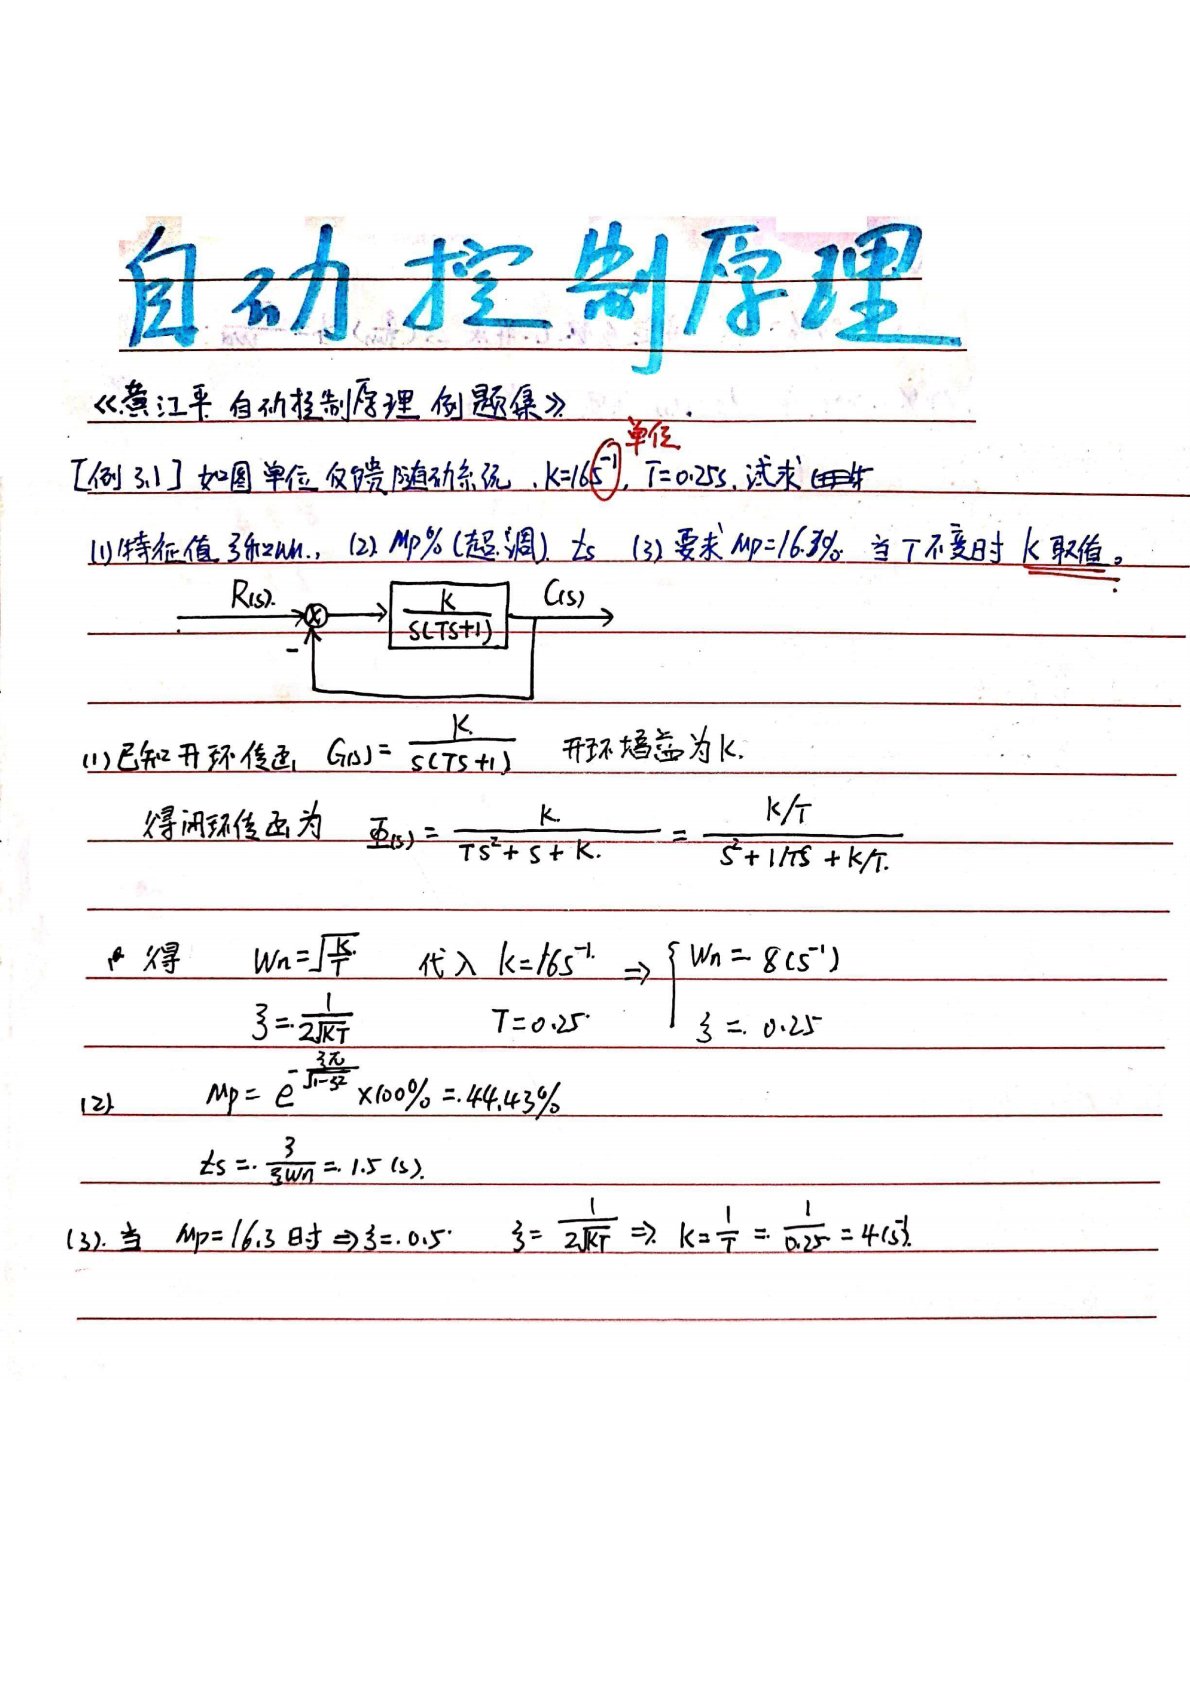 自动控制原理
《黄江平 自动控制原理 例题集》
单位
[例3.1] 如图单位反馈随动系统, K=16s⁻¹, T=0.25s, 试求
(1) 特征值 ξ和ωn., (2) Mp%(超调). ts (3) 要求 Mp=16.3% 当T不变时 K取值。
R(s). K/(s(Ts+1)) C(s)
-
(1) 已知开环传函 G(s) = K/(s(Ts+1)) 开环增益为K.
得闭环传函为 Φ(s) = K/(Ts²+s+K) = (K/T)/(s²+1/Ts+K/T)
得 Wn=√(K/T) 代入 K=16s⁻¹ ⇒ { Wn = 8(s⁻¹)
ξ = 1/(2√(KT)) T=0.25 ξ = 0.25
(2) Mp = e^(-ξπ/√(1-ξ²)) ×100% = 44.43%
ts = 3/(ξWn) = 1.5(s).
(3). 当 Mp=16.3时 ⇒ ξ=0.5 ξ = 1/(2√(KT)) ⇒ K = 1/T = 1/0.25 = 4(s⁻¹).